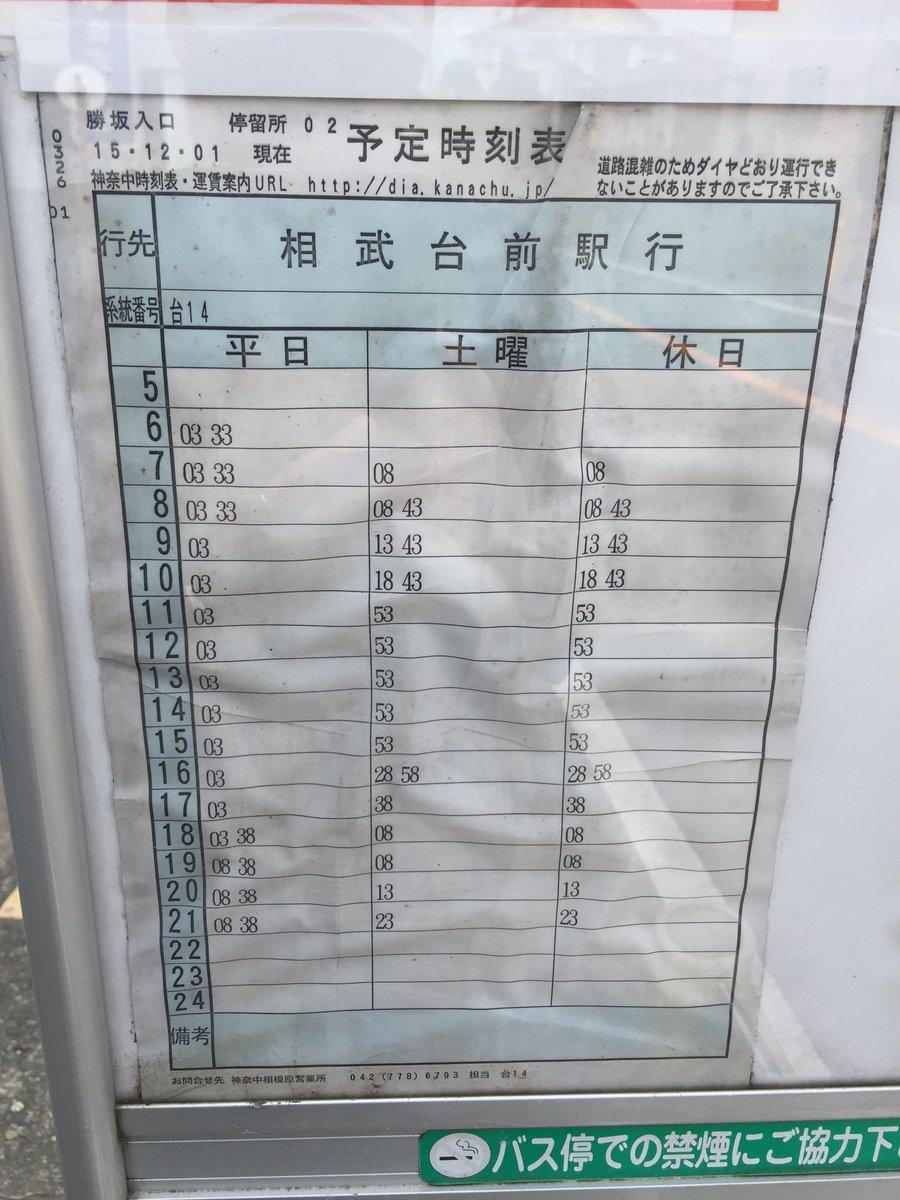 勝坂入口 停留所 02 予定時刻表
15・12・01 現在
道路混雑のためダイヤどおり運行でき
ないことがありますのでご了承下さい。
神奈中時刻表・運賃案内URL http://dia.kanachu.jp/
0326
01
行先 相武台前駅行
系統番号 台14
平日 土曜 休日
5
6 03 33
7 03 33 08 08
8 03 33 08 43 08 43
9 03 13 43 13 43
10 03 18 43 18 43
11 03 53 53
12 03 53 53
13 03 53 53
14 03 53 53
15 03 53 53
16 03 28 58 28 58
17 03 38 38
18 03 38 08 08
19 08 38 08 08
20 08 38 13 13
21 08 38 23 23
22
23
24
備考
お問合せ先 神奈中相模原営業所 042(778)6793 担当 台14
バス停での禁煙にご協力下